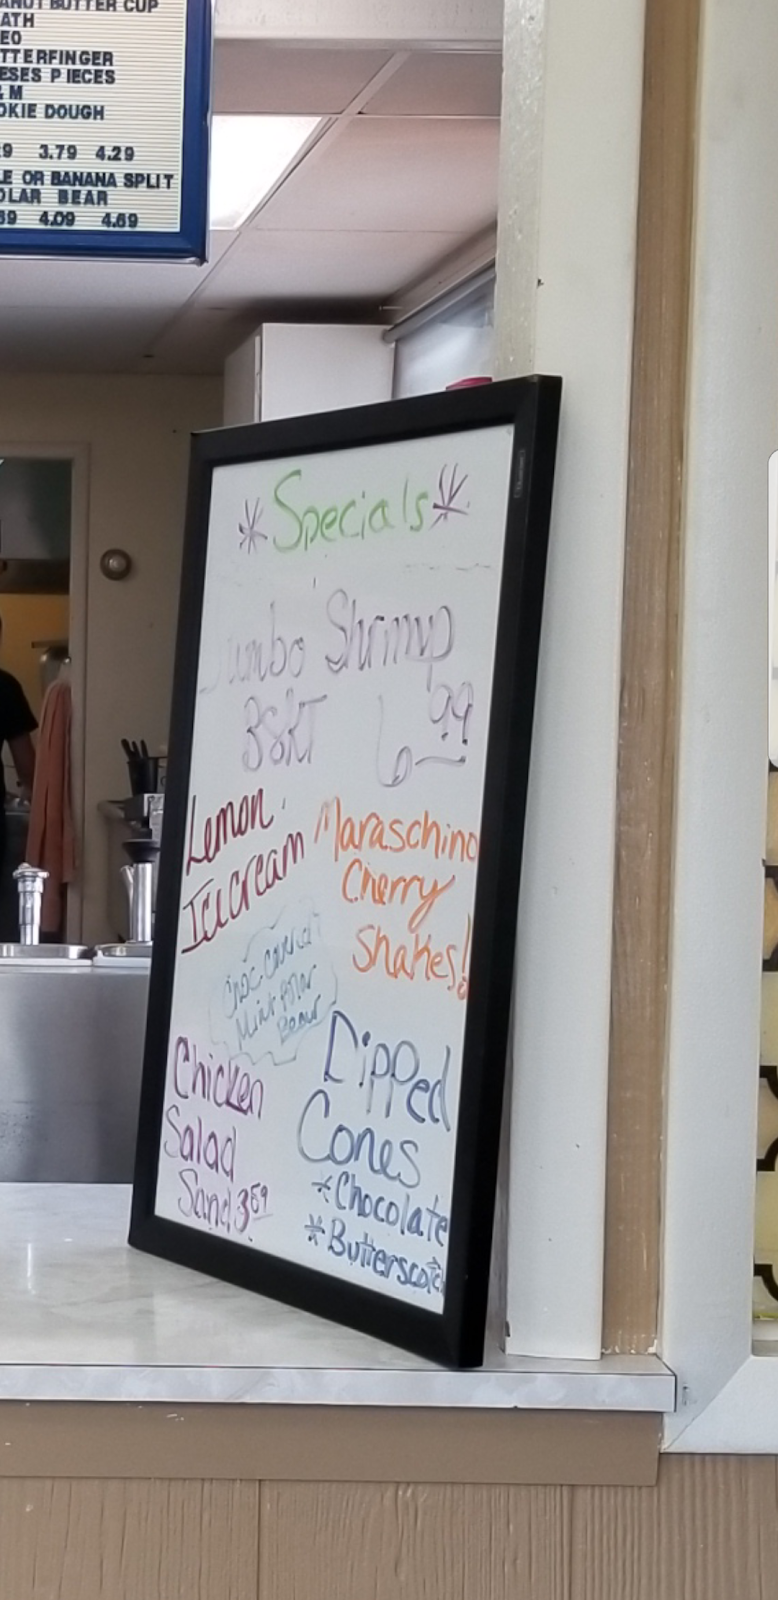 ANUT BUTTER CUP
ATH
EO
TTERFINGER
ESES PIECES
& M
OKIE DOUGH
9 3.79 4.29
LE OR BANANA SPLIT
OLAR BEAR
69 4.09 4.69
* Specials *
Jumbo Shrimp
BSKT 6.99
Lemon
Icecream
Maraschino
Cherry
Shakes!
Choc. Covered
Mint Polar
Bear
Chicken
Salad
Sand 3.59
Dipped
Cones
*Chocolate
*Butterscotch